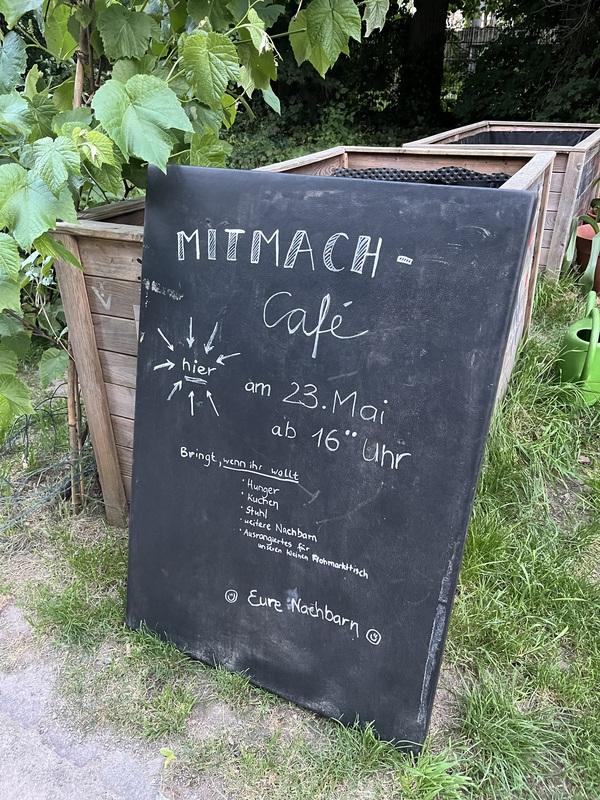 MITMACH -
Café
hier
am 23. Mai
ab 16°° Uhr
Bringt, wenn ihr wollt
· Hunger
· Kuchen
· Stuhl
· weitere Nachbarn
· Ausrangiertes für
unseren kleinen Flohmarkttisch
☺ Eure Nachbarn ☺